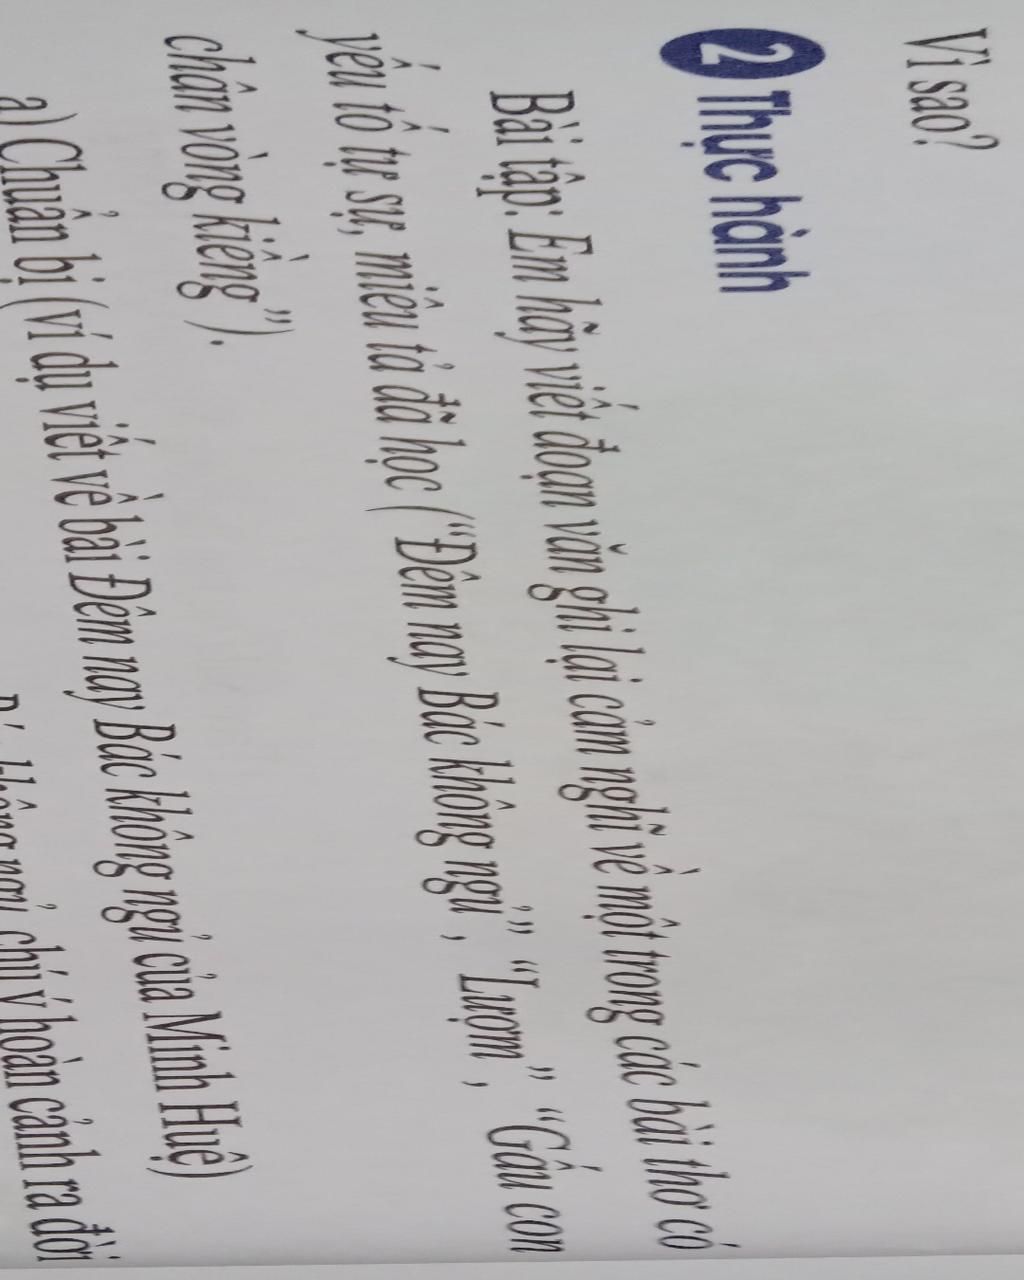 Vì sao?
2 Thực hành
Bài tập: Em hãy viết đoạn văn ghi lại cảm nghĩ về một trong các bài thơ có
yếu tố tự sự, miêu tả đã học (“Đêm nay Bác không ngủ”, “Lượm”, “Gấu con
chân vòng kiềng”).
a) Chuẩn bị (ví dụ viết về bài Đêm nay Bác không ngủ của Minh Huệ)
không ngủ, chú ý hoàn cảnh ra đời